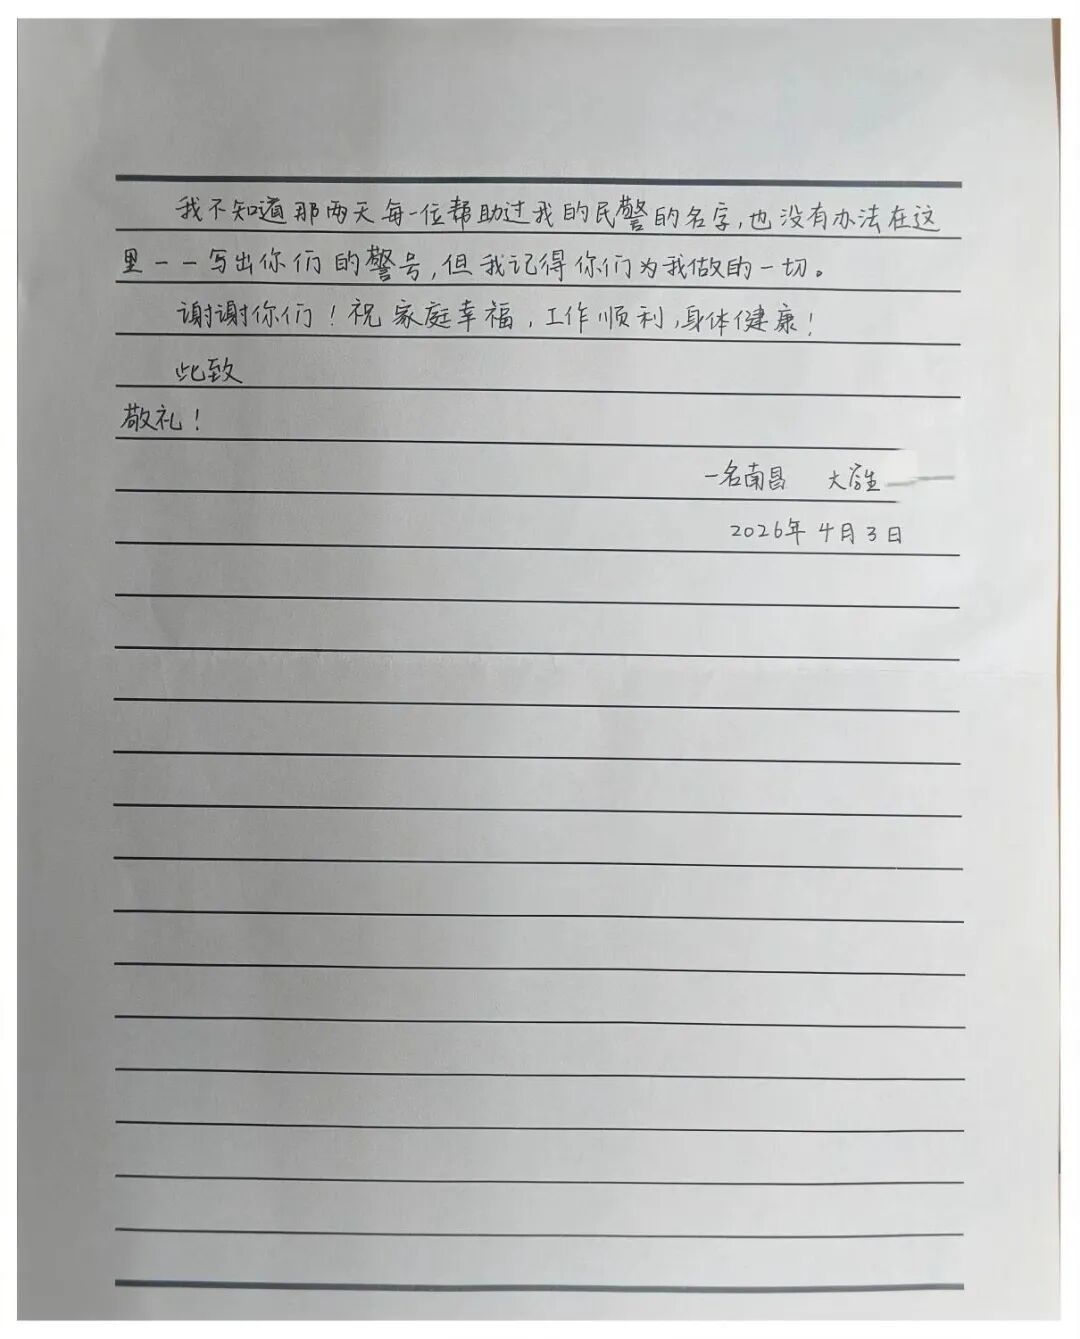 我不知道那两天每一位帮助过我的民警的名字,也没有办法在这
里一一写出你们的警号,但我记得你们为我做的一切。
谢谢你们!祝家庭幸福,工作顺利,身体健康!
此致
敬礼!
一名南昌 大学生
2026年4月3日